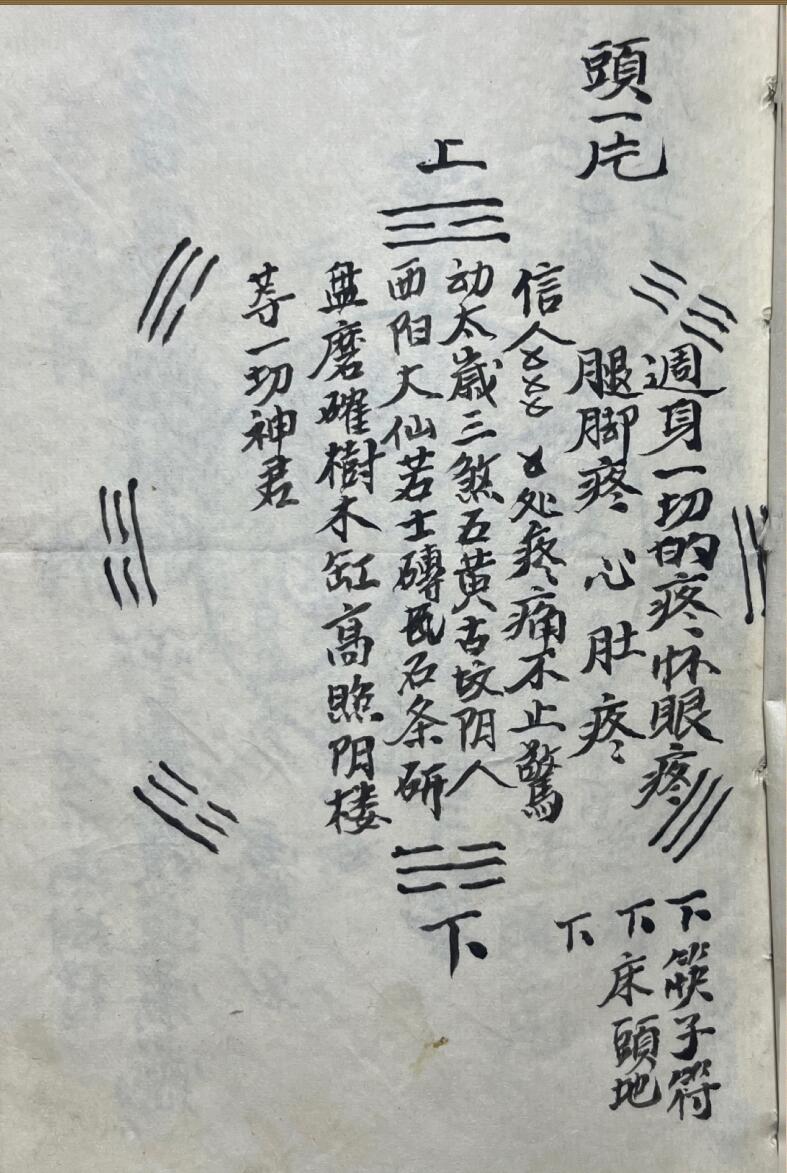 頭一庀
上
週身一切的疼怀眼疼
腿脚疼 心肚疼
信人〤〤〤 〤处疼痛不止驚
动太歲三煞五黄古坟阴人
西阳大仙若士磚瓦石条研
盘磨確樹木缸高照阴楼
等一切神君
下
下筷子符
下床頭地
下